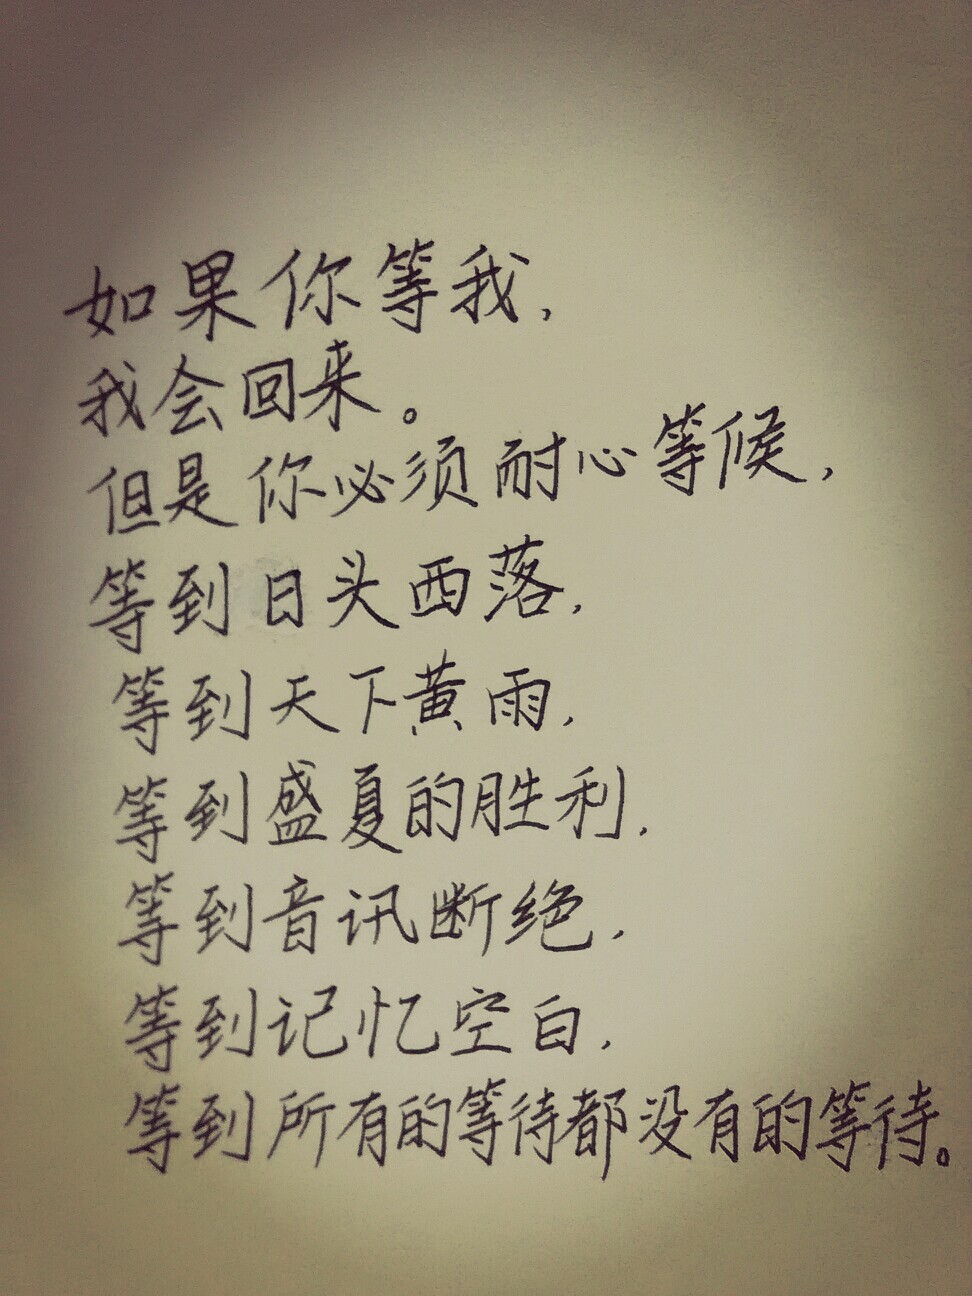 如果你等我，
我会回来。
但是你必须耐心等候，
等到日头西落，
等到天下黄雨，
等到盛夏的胜利，
等到音讯断绝，
等到记忆空白，
等到所有的等待都没有的等待。